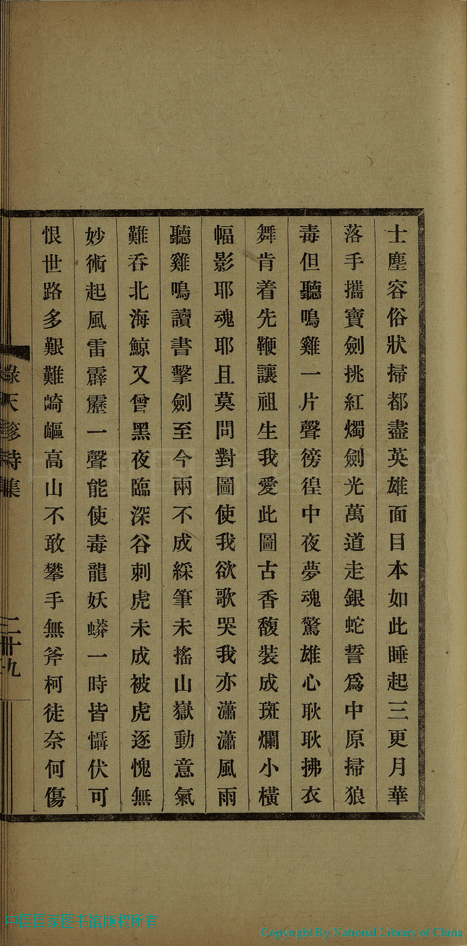 士塵容俗狀掃都盡英雄面目本如此睡起三更月華
落手攜寶劍挑紅燭劍光萬道走銀蛇誓爲中原掃狼
毒但聽鳴雞一片聲徬徨中夜夢魂驚雄心耿耿拂衣
舞肯着先鞭讓祖生我愛此圖古香馥裝成斑斕小橫
幅影耶魂耶且莫問對圖使我欲歌哭我亦瀟瀟風雨
聽雞鳴讀書擊劍至今兩不成綵筆未搖山嶽動意氣
難吞北海鯨又曾黑夜臨深谷刺虎未成被虎逐愧無
妙術起風雷霹靂一聲能使毒龍妖蟒一時皆懾伏可
恨世路多艱難崎嶇高山不敢攀手無斧柯徒奈何傷
天 詩集
九
Copyright By National Library of China